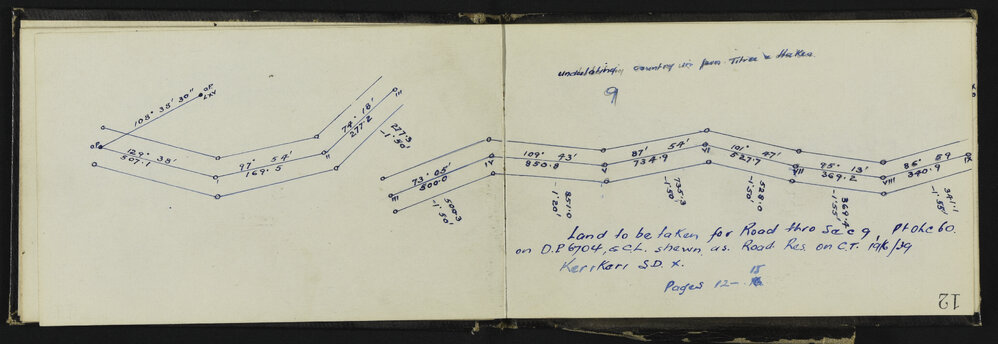 undulating country in fern Titree & Hakea
9
108° 35' 30"
OP
LXV
OP
129° 38'
507.1
I
97° 54'
169.5
II
74° 18'
277.2
III
277.3
-1°50'
III
73° 05'
500.0
500.3
-1°50'
IV
109° 43'
850.8
851.0
-1°20'
V
87° 54'
734.9
735.3
-1°50'
VI
101° 47'
527.7
528.0
-1°50'
VII
95° 13'
369.2
369.4
-1°55'
VIII
86° 59
340.9
341.1
-1°55'
IX
Land to be taken for Road thro Sec 9, Pt OLC 60.
on D.P 6704, & C.L. shewn as Road Res. on C.T. 196/29
Kerikeri S.D. X.
Pages 12 - 15
12